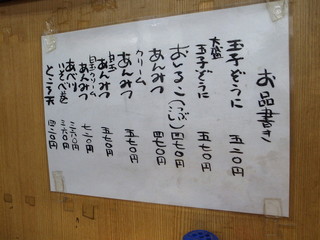 お品書き
玉子ぞうに 五二〇円
大盛玉子ぞうに 五七〇円
おしるこ(つぶし) 四七〇円
あんみつ 四七〇円
クリームあんみつ 五七〇円
白玉あんみつ 五七〇円
白玉クリームあんみつ 七二〇円
あべ川 三六〇円
いそべ巻 三六〇円
ところ天 四二〇円